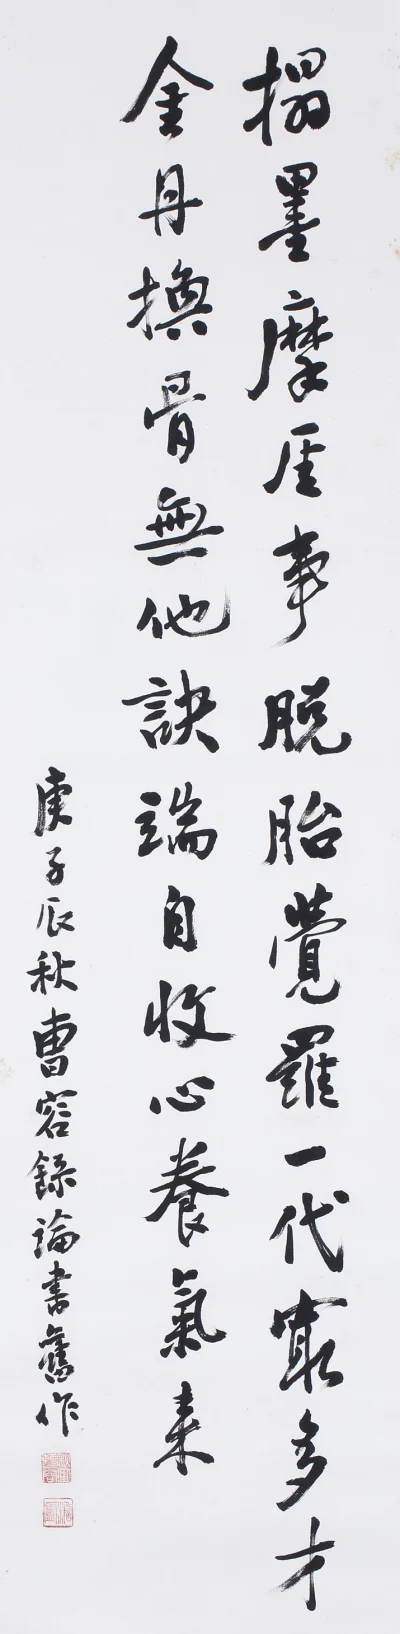 搨墨摩厓事脱胎覺羅一代冣多才
金丹換骨無他訣端自收心養氣来
庚子辰秋曹容録論書舊作